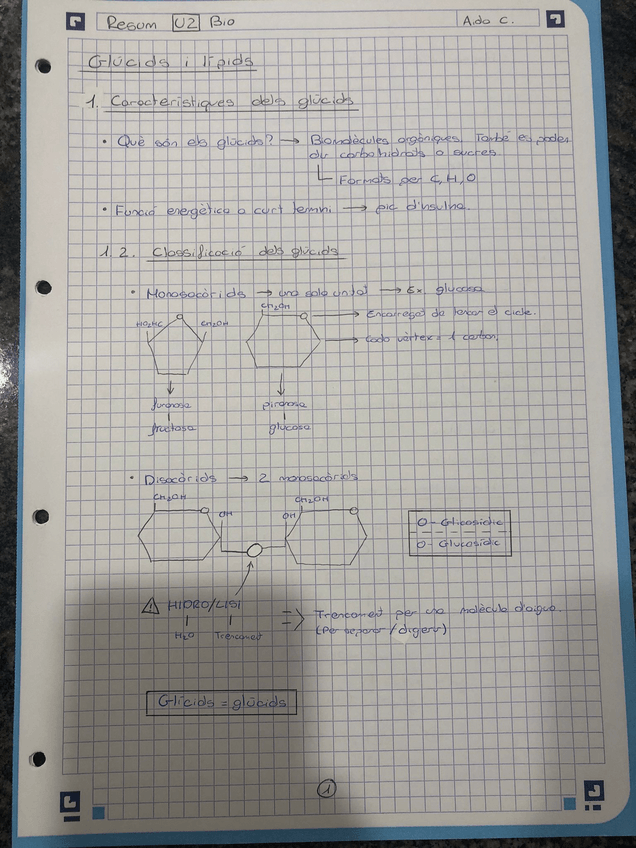 Resum U2 Bio
Aida C.
Glúcids i lípids
1. Característiques dels glúcids
• Què són els glúcids? → Biomolècules orgàniques. També es poden
dir carbohidrats o sucres
Formats per C, H, O
• Funció energètica a curt termini → pic d'insulina.
1.2. Classificació dels glúcids
• Monosacàrids → una sola unitat → Ex. glucosa
CH₂OH
→ Encarregat de tancar el cicle.
HO₂HC
CH₂OH
→ Cada vèrtex = 1 carboni
furanosa
piranosa
fructosa
glucosa
• Disacàrids → 2 monosacàrids
CH₂OH
CH₂OH
OH
OH
O- Glicosídic
O- Glucosídic
HIDRO/LISI
⇒ Trencament per una molècula d'aigua.
H₂O
Trencament
(Per separar / digerir)
Glícids = glúcids
1